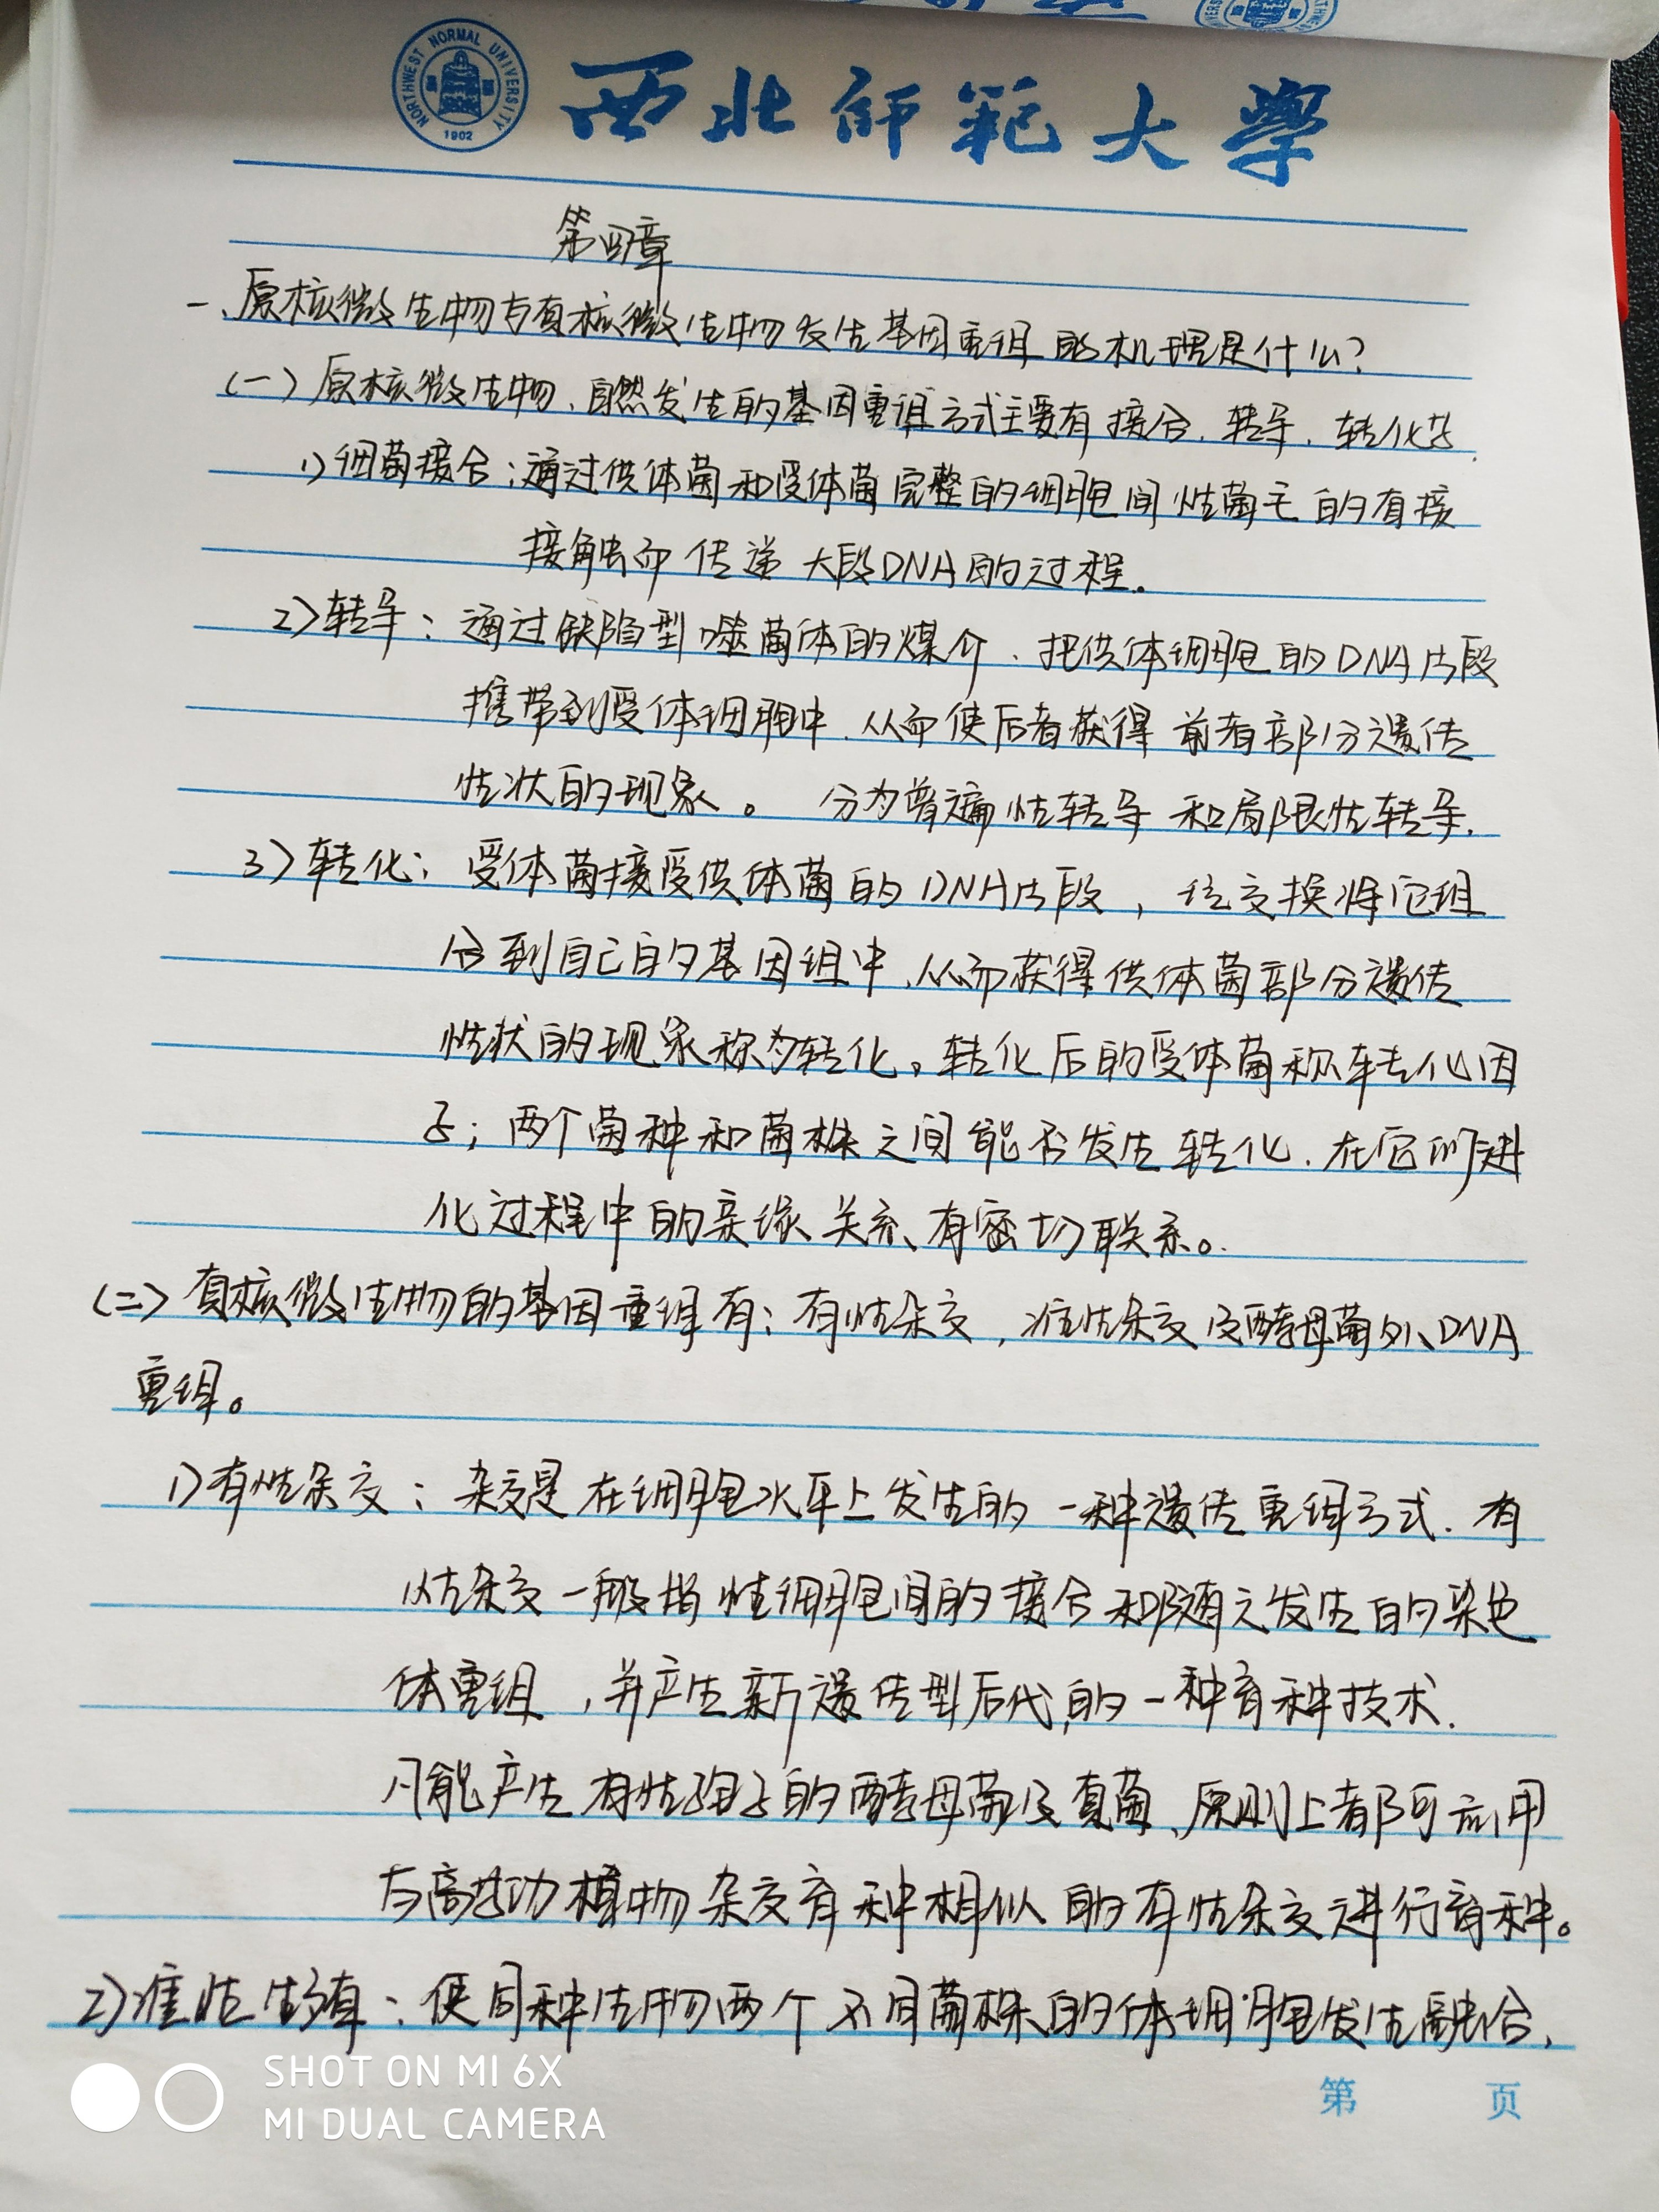 NORTHWEST NORMAL UNIVERSITY
1902
西北师范大學
第四章
一、原核微生物与真核微生物发生基因重组的机理是什么?
(一)原核微生物、自然发生的基因重组方式主要有接合、转导、转化等.
1)细菌接合:通过供体菌和受体菌完整的细胞间性菌毛的直接
接触而传递大段DNA的过程.
2)转导:通过缺陷型噬菌体的媒介、把供体细胞的DNA片段
携带到受体细胞中、从而使后者获得前者部分遗传
性状的现象。分为普遍性转导和局限性转导.
3)转化:受体菌接受供体菌的DNA片段,经交换将它组
合到自己的基因组中、从而获得供体菌部分遗传
性状的现象称为转化。转化后的受体菌称转化因
子;两个菌种和菌株之间能否发生转化、在它们进
化过程中的亲缘关系、有密切联系。
(二)真核微生物的基因重组有:有性杂交,准性杂交及酵母菌外DNA
重组。
1)有性杂交:杂交是在细胞水平上发生的一种遗传重组方式.有
性杂交一般指性细胞间的接合和随之发生的染色
体重组,并产生新遗传型后代的一种育种技术.
凡能产生有性孢子的酵母菌及真菌、原则上都可应用
与高等动植物杂交育种相似的有性杂交进行育种。
2)准性生殖:使同种生物两个不同菌株的体细胞发生融合、
SHOT ON MI 6X
MI DUAL CAMERA
第 页